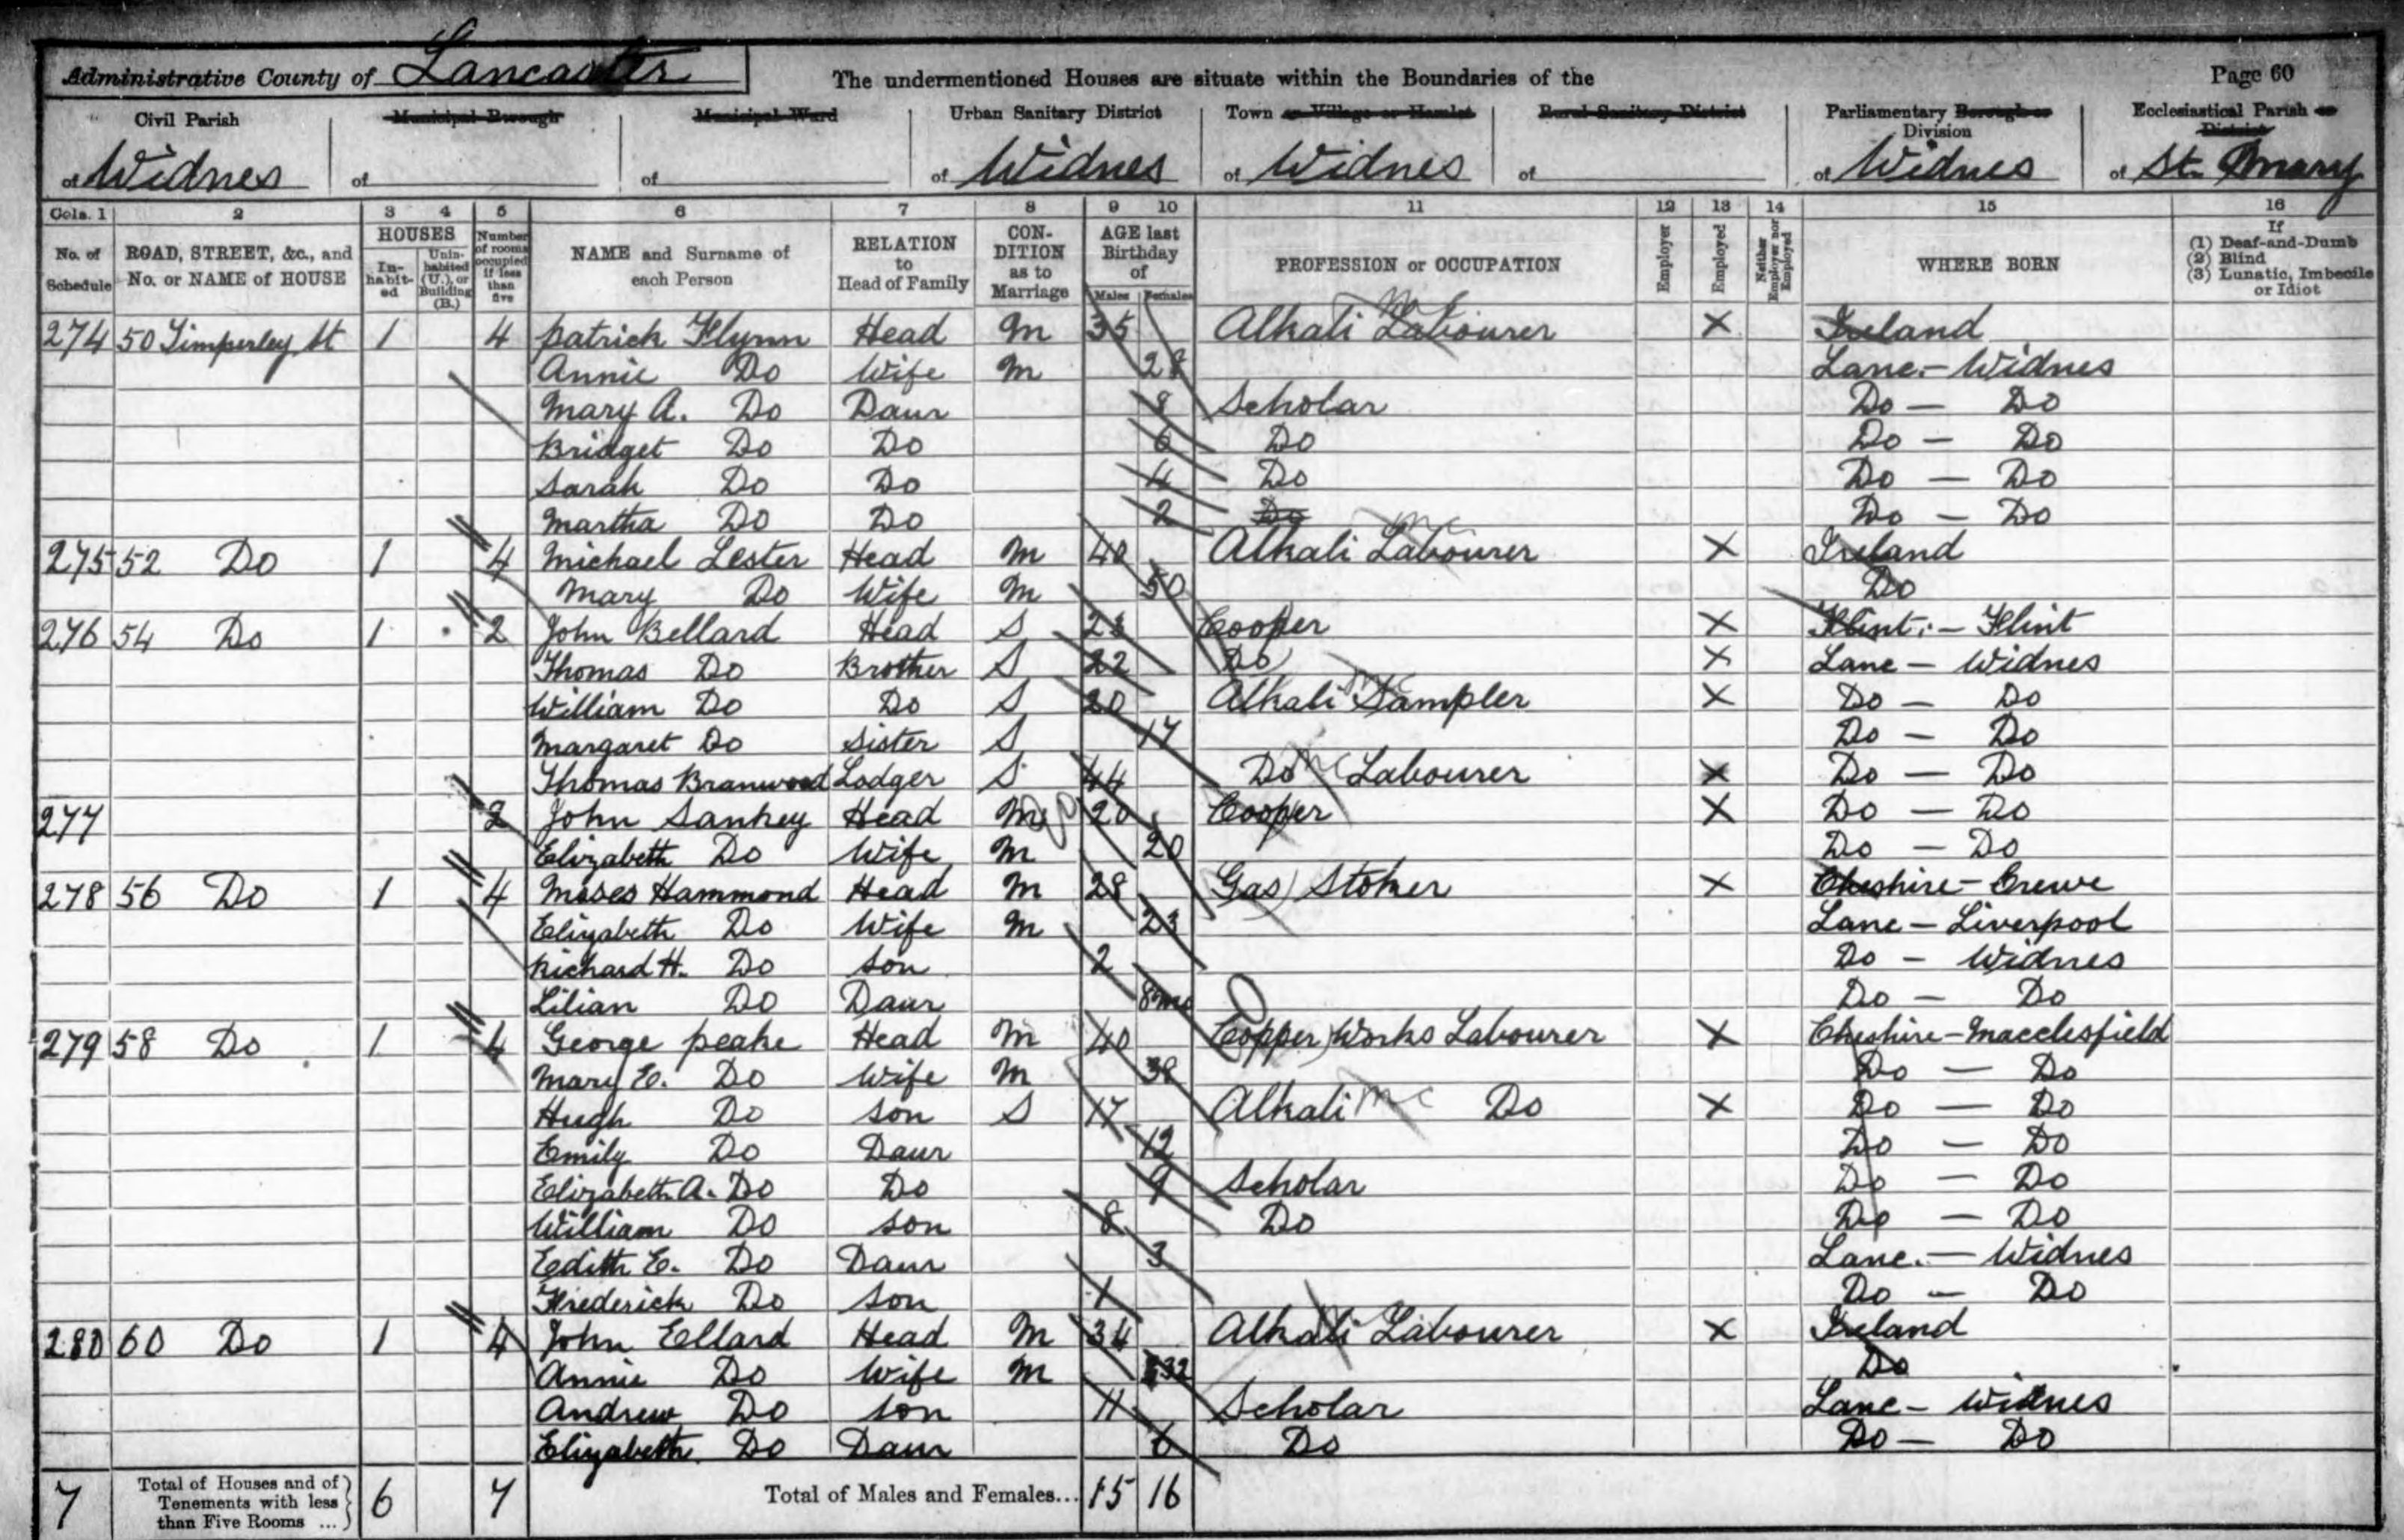 Administrative County of Lancaster The undermentioned Houses are situate within the Boundaries of the Page 60
Civil Parish Municipal Borough Municipal Ward Urban Sanitary District Town or Village or Hamlet Rural Sanitary District Parliamentary Borough or Division Ecclesiastical Parish or District
of Widnes of of of Widnes of Widnes of of Widnes of St. Mary
Cols. 1 2 3 4 5 6 7 8 9 10 11 12 13 14 15 16
No. of Schedule ROAD, STREET, &c., and No. or NAME of HOUSE HOUSES In-habit-ed Unin-habited (U.), or Building (B.) Number of rooms occupied if less than five NAME and Surname of each Person RELATION to Head of Family CON-DITION as to Marriage AGE last Birthday of Males Females PROFESSION or OCCUPATION Employer Employed Neither Employer nor Employed WHERE BORN If (1) Deaf-and-Dumb (2) Blind (3) Lunatic, Imbecile or Idiot
274 50 Timperley St 1 4 Patrick Flynn Head M 35 Alkali Labourer X Ireland
Annie Do Wife M 28 Lanc. - Widnes
Mary A. Do Daur 8 Scholar Do - Do
Bridget Do Do 6 Do Do - Do
Sarah Do Do 4 Do Do - Do
Martha Do Do 2 Do Do - Do
275 52 Do 1 4 Michael Lester Head M 40 Alkali Labourer X Ireland
Mary Do Wife M 50 Do
276 54 Do 1 2 John Bellard Head S Cooper X Flint. - Flint
Thomas Do Brother S 22 Do X Lanc - Widnes
William Do Do S 20 Alkali Sampler X Do - Do
Margaret Do Sister S 17 Do - Do
Thomas Branwood Lodger S 44 Do Labourer X Do - Do
277 2 John Sankey Head M 20 Cooper X Do - Do
Elizabeth Do Wife M 20 Do - Do
278 56 Do 1 4 Moses Hammond Head M 28 Gas Stoker X Cheshire - Crewe
Elizabeth Do Wife M 23 Lanc - Liverpool
Richard H. Do Son 2 Do - Widnes
Lilian Do Daur 8mo Do - Do
279 58 Do 1 4 George Peake Head M 40 Copper Works Labourer X Cheshire - Macclesfield
Mary E. Do Wife M 38 Do - Do
Hugh Do Son S 17 Alkali Do X Do - Do
Emily Do Daur 12 Do - Do
Elizabeth A. Do Do 9 Scholar Do - Do
William Do Son 8 Do Do - Do
Edith E. Do Daur 3 Lanc. - Widnes
Frederick Do Son 1 Do - Do
280 60 Do 1 4 John Ellard Head M 34 Alkali Labourer X Ireland
Annie Do Wife M 32 Do
Andrew Do Son 11 Scholar Lanc - Widnes
Elizabeth Do Daur 6 Do Do - Do
7 Total of Houses and of Tenements with less than Five Rooms ... 6 7 Total of Males and Females... 15 16